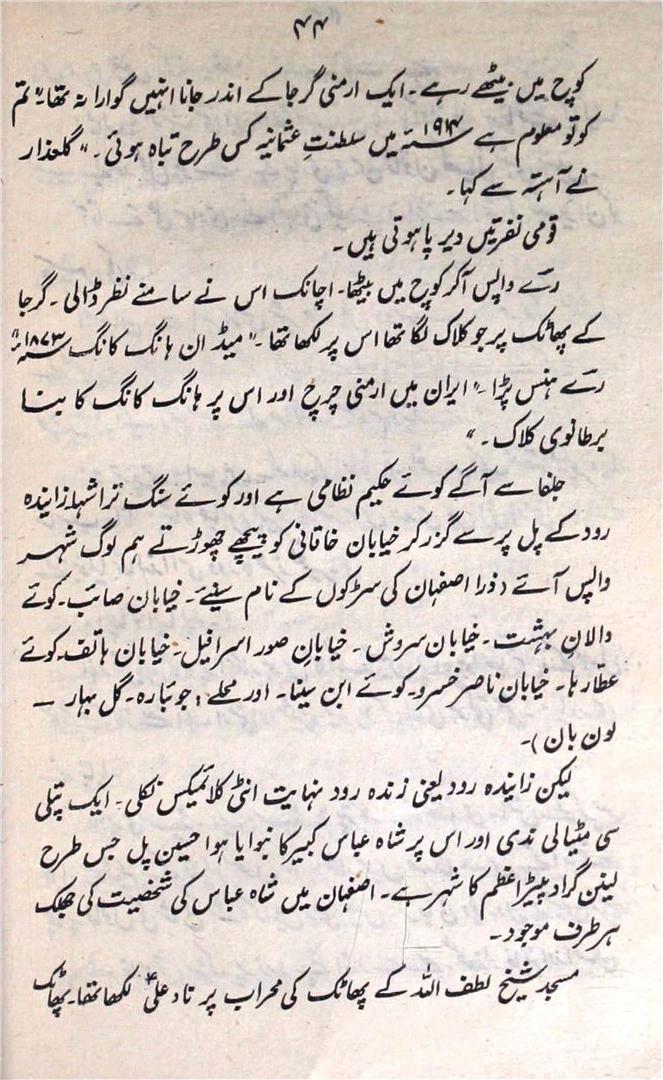 ۴۴
کوچ میں بیٹھے رہے۔ ایک ارمنی گرجا کے اندر جانا انہیں گوارا نہ تھا۔ "تم
کو تو معلوم ہے ۱۹۱۴ء میں سلطنتِ عثمانیہ کس طرح تباہ ہوئی۔" گلعذار
نے آہستہ سے کہا۔
قومی نفرتیں دیرپا ہوتی ہیں۔
رے واپس آکر کوچ میں بیٹھا۔ اچانک اس نے سامنے نظر ڈالی۔ گرجا
کے پھاٹک پر جو کلاک لگا تھا اس پر لکھا تھا۔ "میڈ ان ہانگ کانگ ۱۸۷۳ء"
رے ہنس پڑا۔ "ایران میں ارمنی چرچ اور اس پر ہانگ کانگ کا بنا
برطانوی کلاک۔"
جلفا سے آگے کوئے حکیم نظامی ہے اور کوئے سنگ تراشہا زایندہ
رود کے پل پر سے گزر کر خیابان خاقانی کو پیچھے چھوڑتے ہم لوگ شہر
واپس آئے (ذرا اصفہان کی سڑکوں کے نام سنیے۔ خیابان صائب۔ کوئے
والانِ بہشت۔ خیابان سروش۔ خیابانِ صور اسرافیل۔ خیابان ہاتف۔ کوئے
عطار ہا۔ خیابان ناصر خسرو۔ کوئے ابن سینا۔ اور محلے: جوئبارہ۔ گل بہار —
لون بان)۔
لیکن زایندہ رود یعنی زندہ رود نہایت انٹی کلائمیکس نکلی۔ ایک پتلی
سی مٹیالی ندی اور اس پر شاہ عباس کبیر کا بنوایا ہوا حسین پل جس طرح
لینن گراد پیٹر اعظم کا شہر ہے۔ اصفہان میں شاہ عباس کی شخصیت کی جھلک
ہر طرف موجود۔
مسجد شیخ لطف اللہ کے پھاٹک کی محراب پر ناد علیؑ لکھا تھا۔ پھاٹک